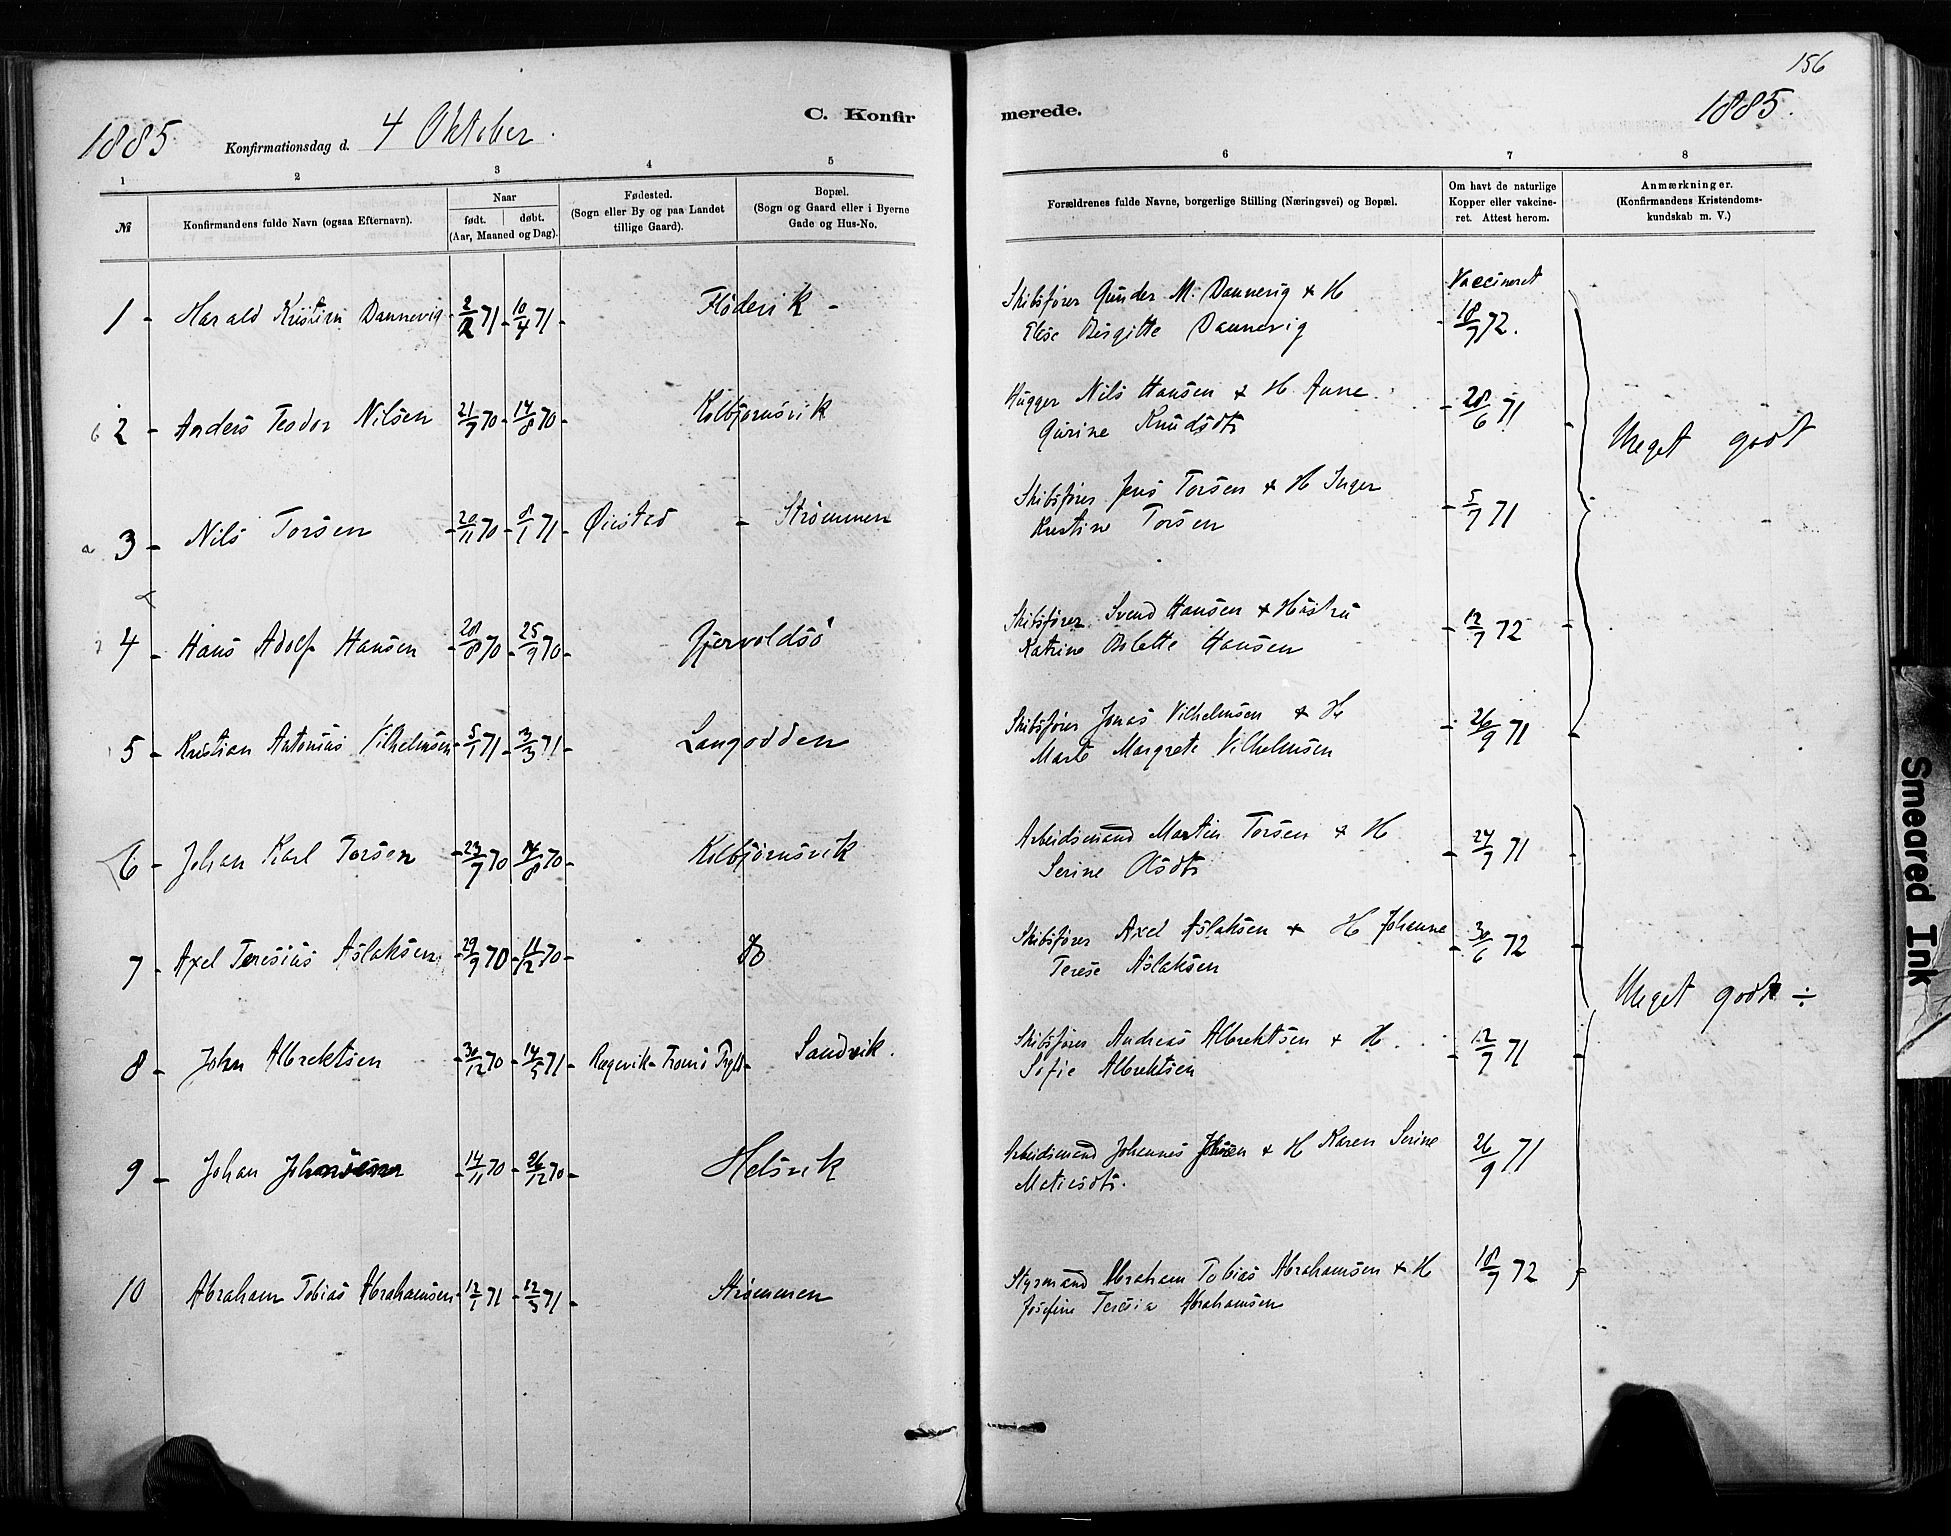 156
1885 Konfirmationsdag d. 4 Oktober. C. Konfir merede. 1885.
1 2 3 4 5 6 7 8
№ Konfirmandens fulde Navn (ogsaa Efternavn). Naar født. døbt. (Aar, Maaned og Dag). Fødested. (Sogn eller By og paa Landet tillige Gaard). Bopæl. (Sogn og Gaard eller i Byerne Gade og Hus-No. Forældrenes fulde Navne, borgerlige Stilling (Næringsvei) og Bopæl. Om havt de naturlige Kopper eller vakcineret. Attest herom. Anmærkninger. (Konfirmandens Kristendomskundskab m. V.)
1 - Harald Kristian Dannevig - 2/2 71 - 10/4 71 - Fløderik - Skibsfører Gunder M. Dannevig & H Vaccineret
Elise Birgitte Dannevig - 18/9 72.
2 - Anders Teodor Nilsen 21/7 70 - 14/8 70 - Kolbjørnsvik Hugger Nils Hansen & H. Anne - 28/6 71
Gurine Knudsdtr
Meget godt
3 - Nils Torsen - 20/11 70 - 8/1 71 - Øiestad - Strømmen Skibsfører Jens Torsen & H Inger - 5/7 71
Kristine Torsen
4 - Hans Adolf Hansen - 28/8 70 - 25/9 70 - Gjervoldsø Skibsfører Svend Hansen & Hustru - 12/7 72
Katrine Oslette Hansen
5 - Kristian Antonius Vilhelmsen - 5/1 71 - 3/3 71 - Langodden Skibsfører Jonas Vilhelmsen & H - 26/9 71
Marte Margrete Vilhelmsen
6 - Johan Karl Torsen - 23/7 70 - 14/8 70 - Kolbjørnsvik Arbeidsmand Martin Torsen & H - 24/7 71
Serine Olsdtr
7 - Axel Teresius Aslaksen - 29/9 70 - 11/12 70 - Do Skibsfører Axel Aslaksen & H Johanne - 30/6 72
Terese Aslaksen
Meget godt ÷
8 - John Albrektsen - 30/12 70 - 14/5 71 - Tromø - Sandvik. Skibsfører Andreas Albrektsen & H. - 12/7 71
Sofie Albrektsen
9 - Johan Johnsen - 14/11 70 - 26/12 70 - Helsvik Arbeidsmand Johannes Johnsen & H Karen Serine 26/9 71
Matiesdtr.
10 Abraham Tobias Abrahamsen - 12/1 71 - 12/3 71 - Strømmen Styrmand Abraham Tobias Abrahamsen & H 18/7 72
Josefine Teresia Abrahamsen
Smeared Ink